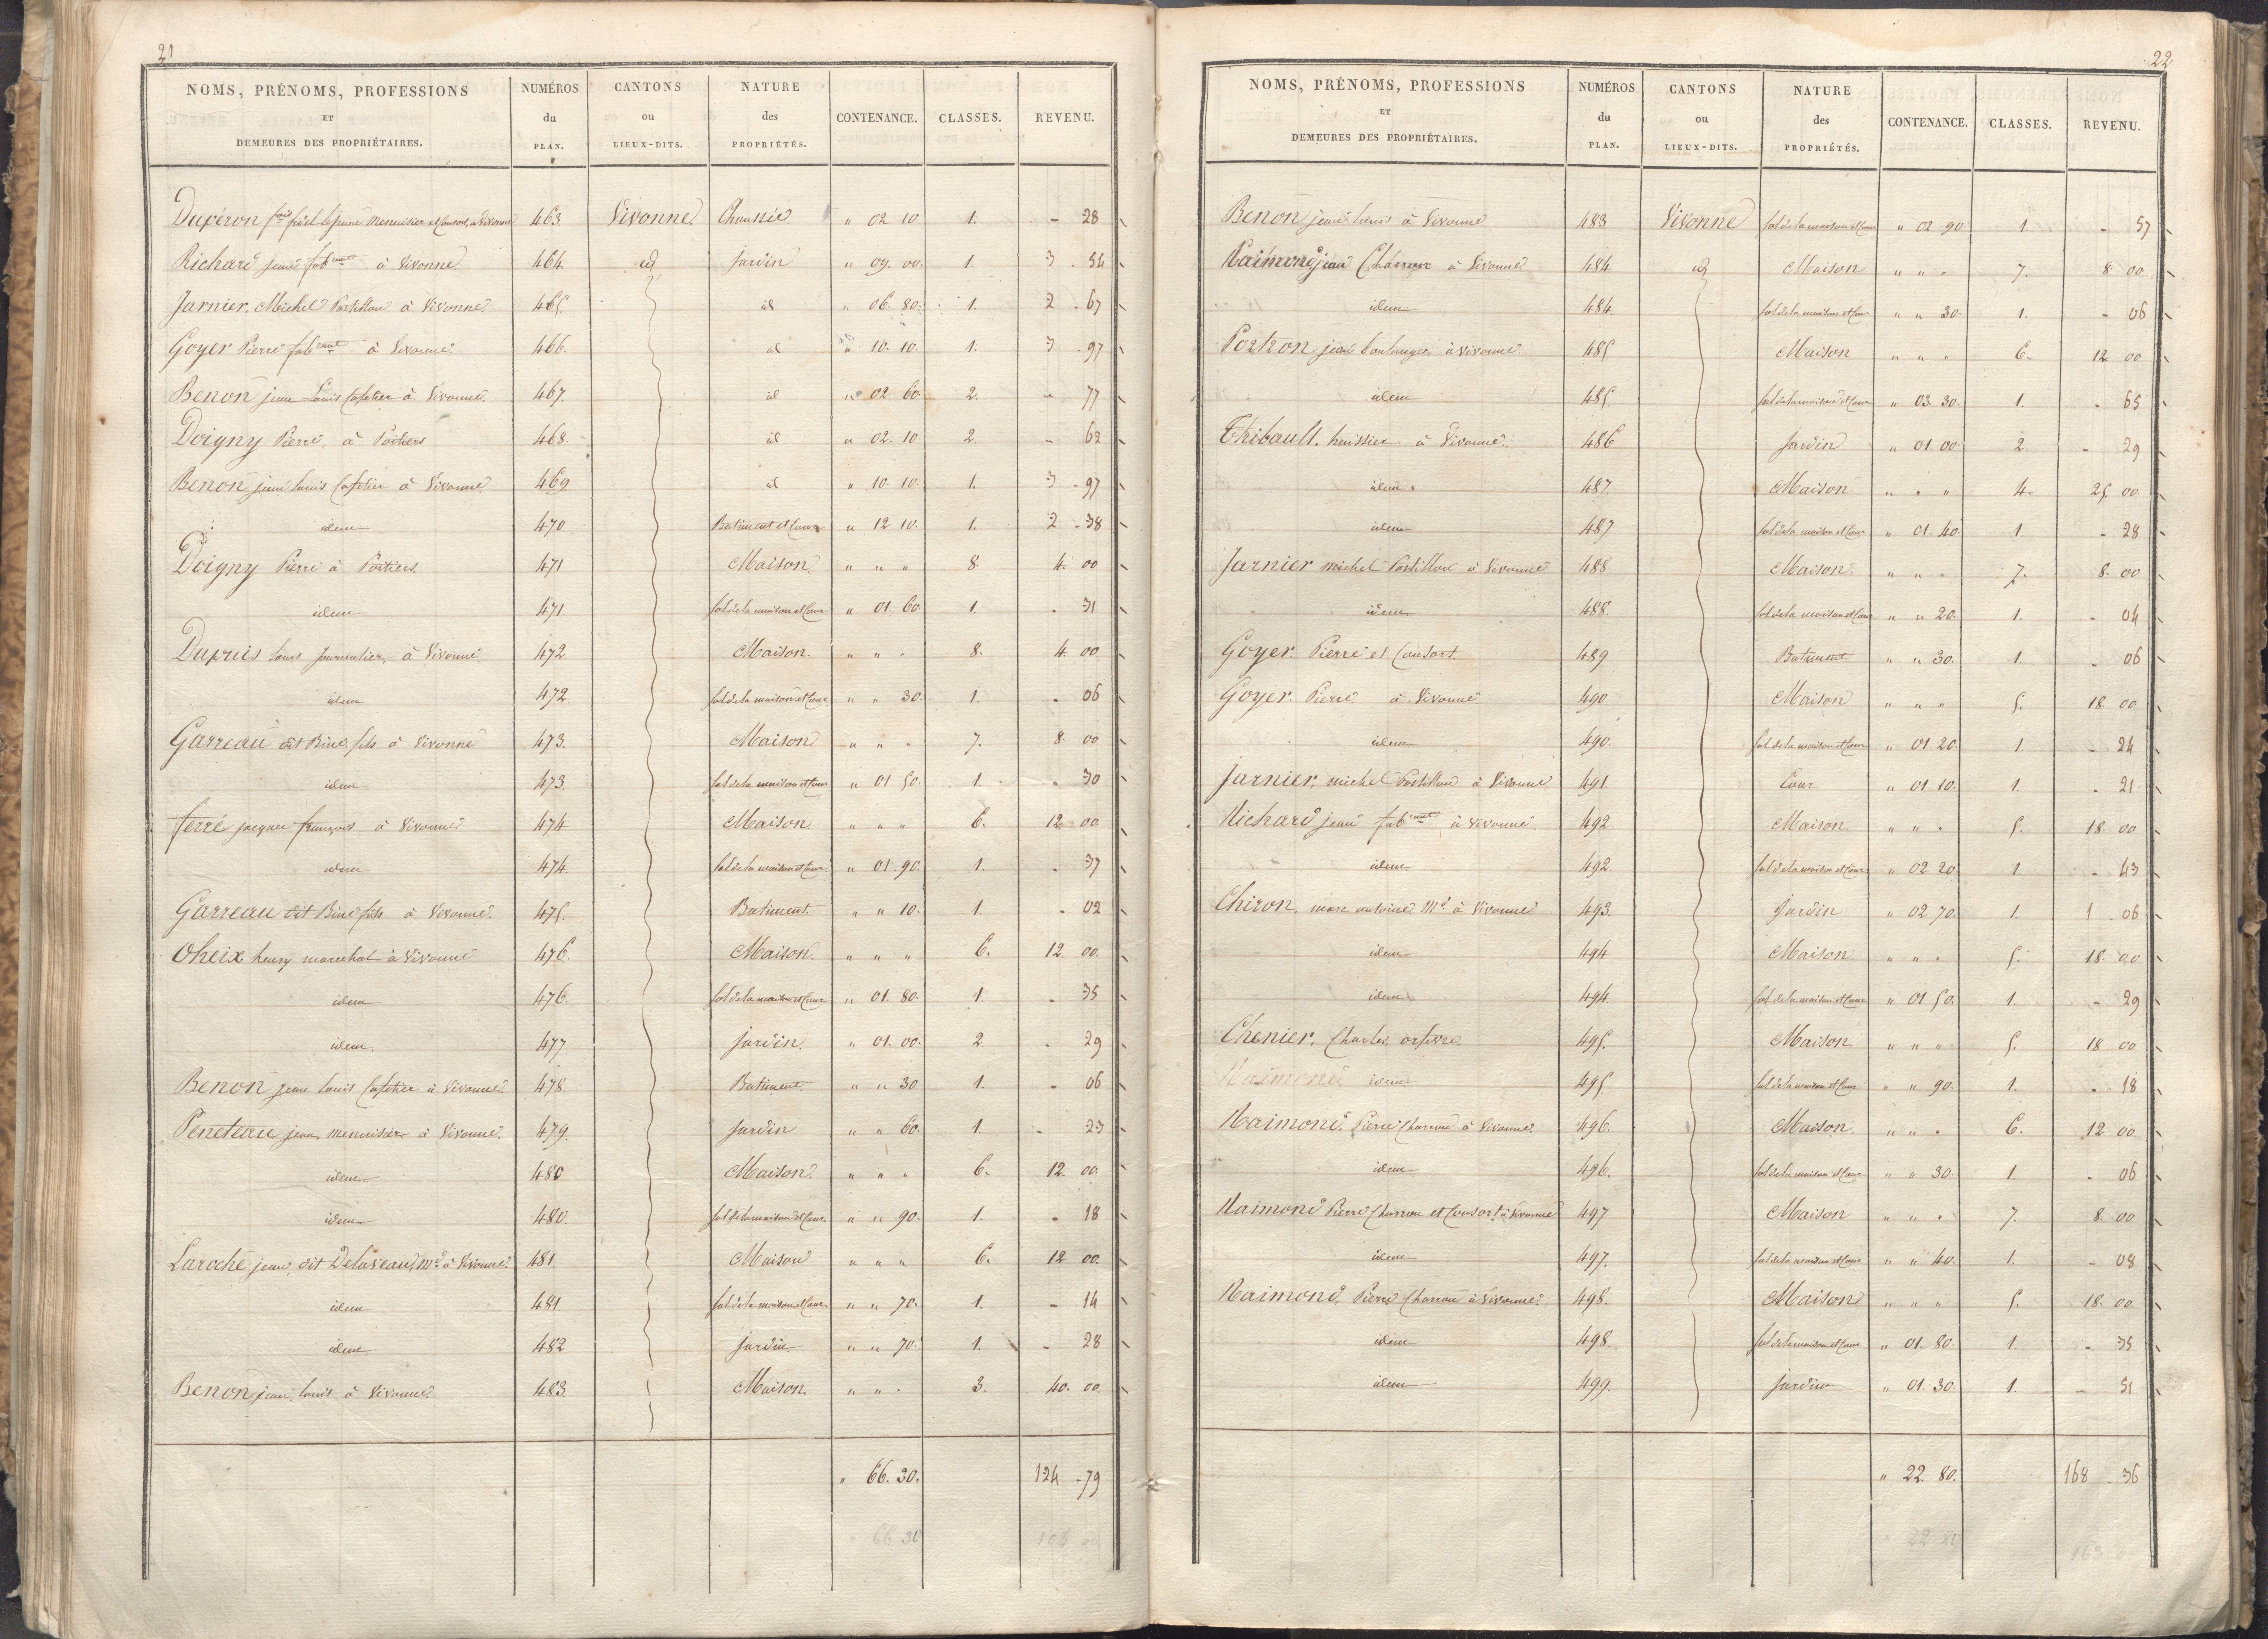 21
NOMS, PRÉNOMS, PROFESSIONS ET DEMEURES DES PROPRIÉTAIRES. NUMÉROS du PLAN. CANTONS ou LIEUX-DITS. NATURE des PROPRIÉTÉS. CONTENANCE. CLASSES. REVENU.
Duperon menuisier et Consort, à Vivonne 463 Vivonne " 02 10 1. - 28
Richard jean fab^cant à Vivonne 464 id jardin " 09. 00. 1. 3 . 54
Jarnier, Michel Postillon à Vivonne 465. id " 06. 80. 1. 2 . 67
Goyer Pierre fab^cant à Vivonne 466. id " 10. 10. 1. 3 . 97
Benon jean Louis Cafetier à Vivonne 467. id " 02 60 2. - 77
Doigny Pierre, à Poitiers 468. id " 02. 10. 2. - 62
Benon jean louis Cafetier à Vivonne 469 id " 10. 10. 1. 3 . 97
idem 470 Batiment et Cour " 12 10. 1. 2 . 38
Doigny Pierre à Poitiers 471 Maison. " " " 8. 4. 00
idem 471 sol de la maison et Cour " 01. 60 1. . 31
Dupuis louis journalier, à Vivonne 472 Maison. " " " 8. 4. 00
idem 472 sol de la maison et Cour " " 30. 1. - 06
Garreau dit Biné fils à Vivonne 473. Maison " " " 7. 8. 00
idem 473. sol de la maison et Cour " 01 50. 1. . 30
ferré jacques françois à Vivonne 474 Maison " " " 6. 12 00
idem 474 sol de la maison et Cour " 01. 90. 1. . 37
Garreau dit Biné fils à Vivonne. 475. Batiment. " " 10. 1. . 02
Oheix henry marechal à Vivonne 476. Maison. " " " 6. 12 00.
idem 476. sol de la maison et Cour " 01. 80. 1. . 35
idem. 477 jardin. " 01. 00. 2 . 29
Benon jean louis Cafetier à Vivonne 478 Batiment. " " 30 1. - 06
Peneteau jean, menuisier à Vivonne. 479. jardin " " 60. 1. - 23
idem 480 Maison. " " " 6. 12. 00
idem 480. sol de la maison et Cour. " " 90. 1. . 18
Laroche jean, dit Delaveau, M^d à Vivonne. 481. Maison " " " 6. 12 00.
idem 481 sol de la maison et Cour. " " 70. 1. - 14
idem 482 jardin " " 70. 1. - 28
Benon jean, louis à Vivonne 483 Maison. " " " 3. 40. 00
" 66. 30. 124 . 79
66 30
22
NOMS, PRÉNOMS, PROFESSIONS ET DEMEURES DES PROPRIÉTAIRES. NUMÉROS du PLAN. CANTONS ou LIEUX-DITS. NATURE des PROPRIÉTÉS. CONTENANCE. CLASSES. REVENU.
Benon jean louis à Vivonne 483 Vivonne sol de la maison et Cour " 02 90. 1. . 57
Naimond jean Charron à Vivonne 484 id Maison " " " 7. 8. 00
idem 484 sol de la maison et Cour " " 30. 1. - 06
Poitron jean boulanger à Vivonne 485 Maison " " " 6. 12 00
idem 485. sol de la maison et Cour " 03. 30. 1. . 65
Thibault, huissier à Vivonne. 486 jardin " 01. 00 2. - 29
idem 487. Maison " " " 4. 25 00
idem 487 sol de la maison et Cour " 01. 40. 1. - 28
Jarnier michel Postillon à Vivonne 488 Maison. " " " 7. 8. 00
idem 488. sol de la maison et Cour " " 20. 1. - 04
Goyer. Pierre et Consort. 489 Batiment " " 30. 1. . 06
Goyer. Pierre à Vivonne 490 Maison " " " 5. 18 00
idem 490. sol de la maison et Cour " 01 20. 1 . 24
Jarnier, michel Postillon à Vivonne 491 Cour " 01. 10. 1. . 21
Richard jean fab^cant à Vivonne 492 Maison. " " " 5. 18 00
idem 492. sol de la maison et Cour " 02 20. 1. . 43
Chiron, marc antoine M^d à Vivonne 493. jardin " 02 70. 1. 1 . 06
idem 494 Maison " " " 5. 18. 00
idem 494 sol de la maison et Cour " 01 50. 1. - 29
Chenier, Charles, orfevre. 495. Maison " " " 5. 18 00
Naimond idem 495. sol de la maison et Cour " " 90. 1. . 18
Naimond, Pierre Charron à Vivonne. 496. Maison " " " 6. 12 00
idem 496. sol de la maison et Cour " " 30. 1. . 06
Naimond Pierre Charron et Consort à Vivonne 497 Maison " " " 7. 8. 00
idem 497. sol de la maison et Cour " " 40. 1. - 08
Naimond, Pierre Charron à Vivonne. 498. Maison " " " 5. 18. 00
idem 498. sol de la maison et Cour " 01. 80. 1. - 35
idem 499. jardin " 01. 30. 1. - 51
" 22. 80. 168 . 36
22 80